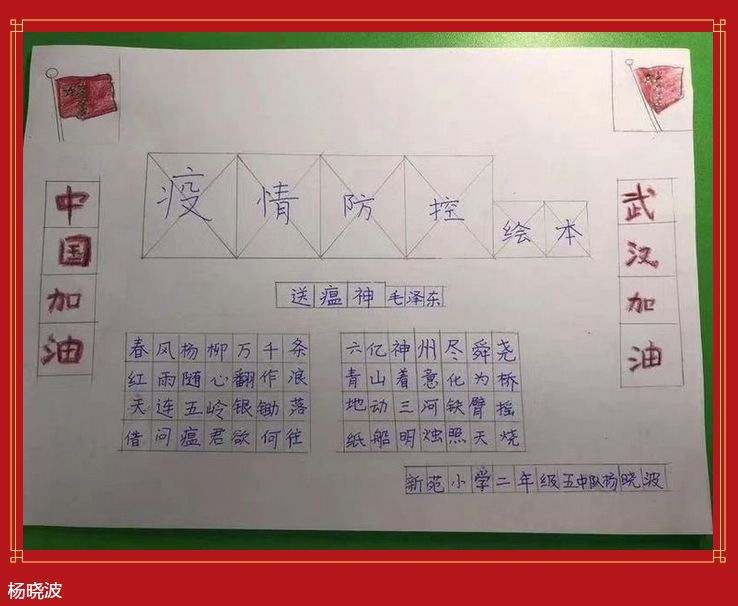 疫情防控绘本
中国加油
武汉加油
送瘟神 毛泽东
春风杨柳万千条 六亿神州尽舜尧
红雨随心翻作浪 青山着意化为桥
天连五岭银锄落 地动三河铁臂摇
借问瘟君欲何往 纸船明烛照天烧
新苑小学二年级五中队杨晓波
杨晓波